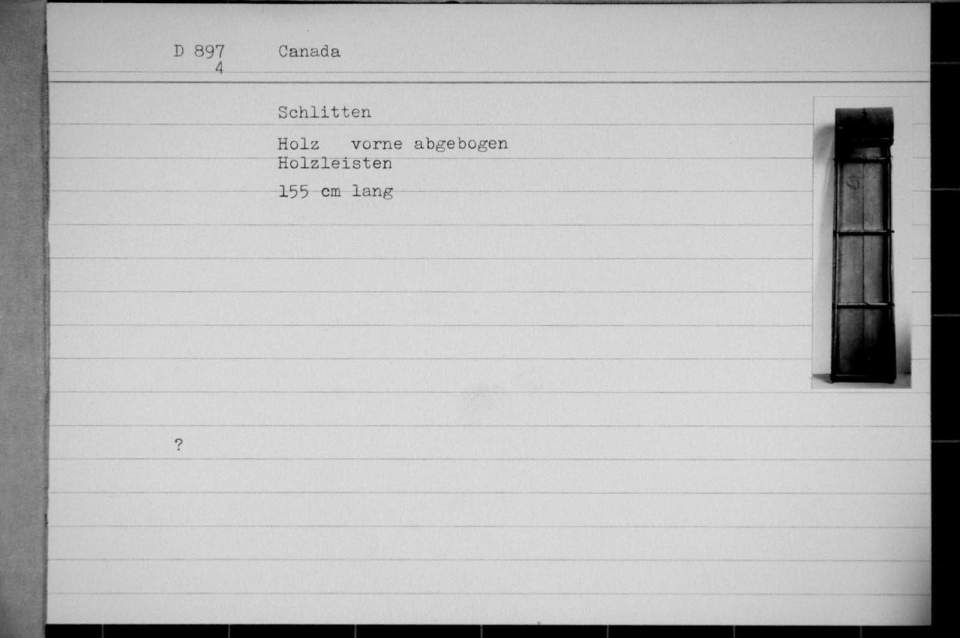 D 897 Canada
4
Schlitten
Holz vorne abgebogen
Holzleisten
155 cm lang
?